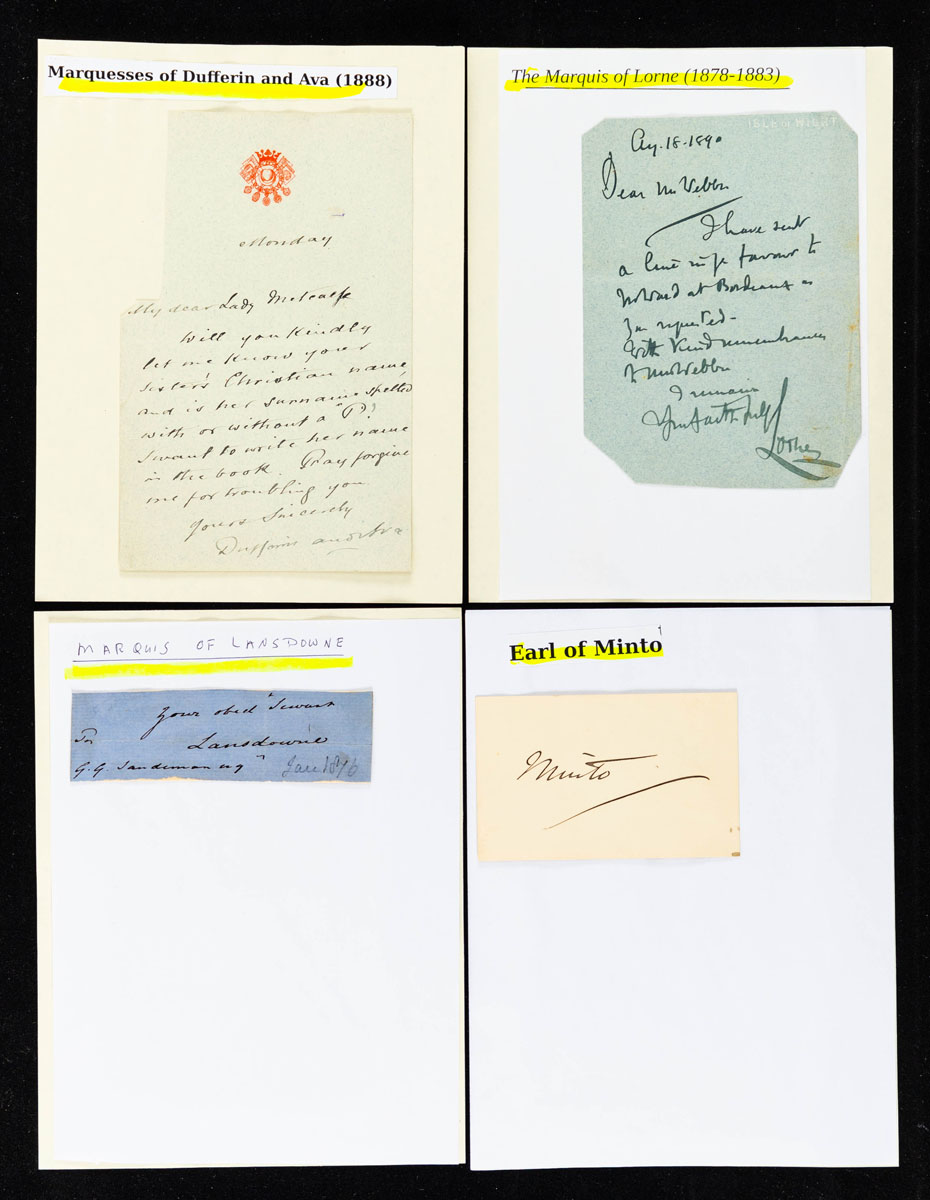 Marquesses of Dufferin and Ava (1888)
Monday
My dear Lady Metcalfe
Will you Kindly
let me know your
Sister's Christian name,
and is her surname spelled
with or without a "P"?
I want to write her name
in the book. Pray forgive
me for troubling you
Yours Sincerely
Dufferin and Ava
The Marquis of Lorne (1878-1883)
ISLE OF WIGHT
Aug. 18. 1890
Dear Mr Webb
I have sent
a line in favour to
at Bordeaux as
requested -
With Kind remembrances
to Mrs Webb
I remain
Yrs faithfully
Lorne
MARQUIS OF LANSDOWNE
Your obed Servant
Lansdowne
To
G. G. Sandeman esq
Earl of Minto
Minto